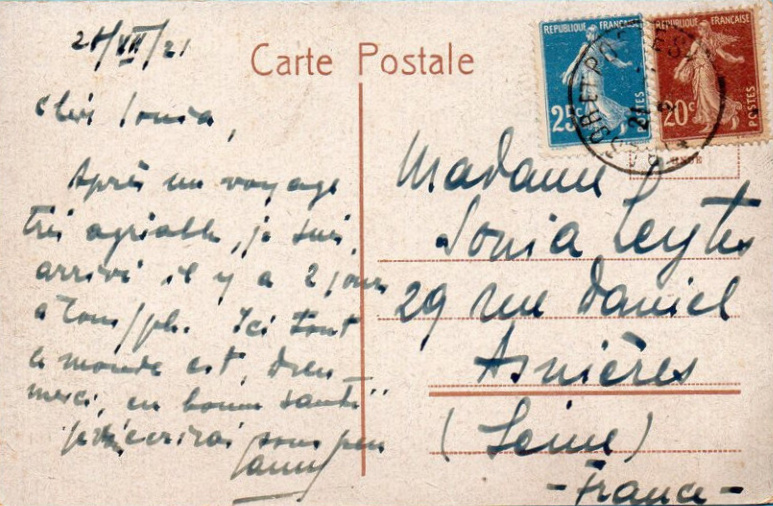 28/VII/21
Carte Postale
REPUBLIQUE FRANÇAISE
25c
REPUBLIQUE FRANÇAISE
20c
POSTES
Cher Sonia,
Après un voyage
très agréable, je suis
arrivé il y a 2 jours
à
Ici tout
le monde est, Dieu
merci, en bonne santé
je t'écrirai sous peu
Madame
Sonia Leytes
29 rue Daniel
Asnières
(Seine)
- France -